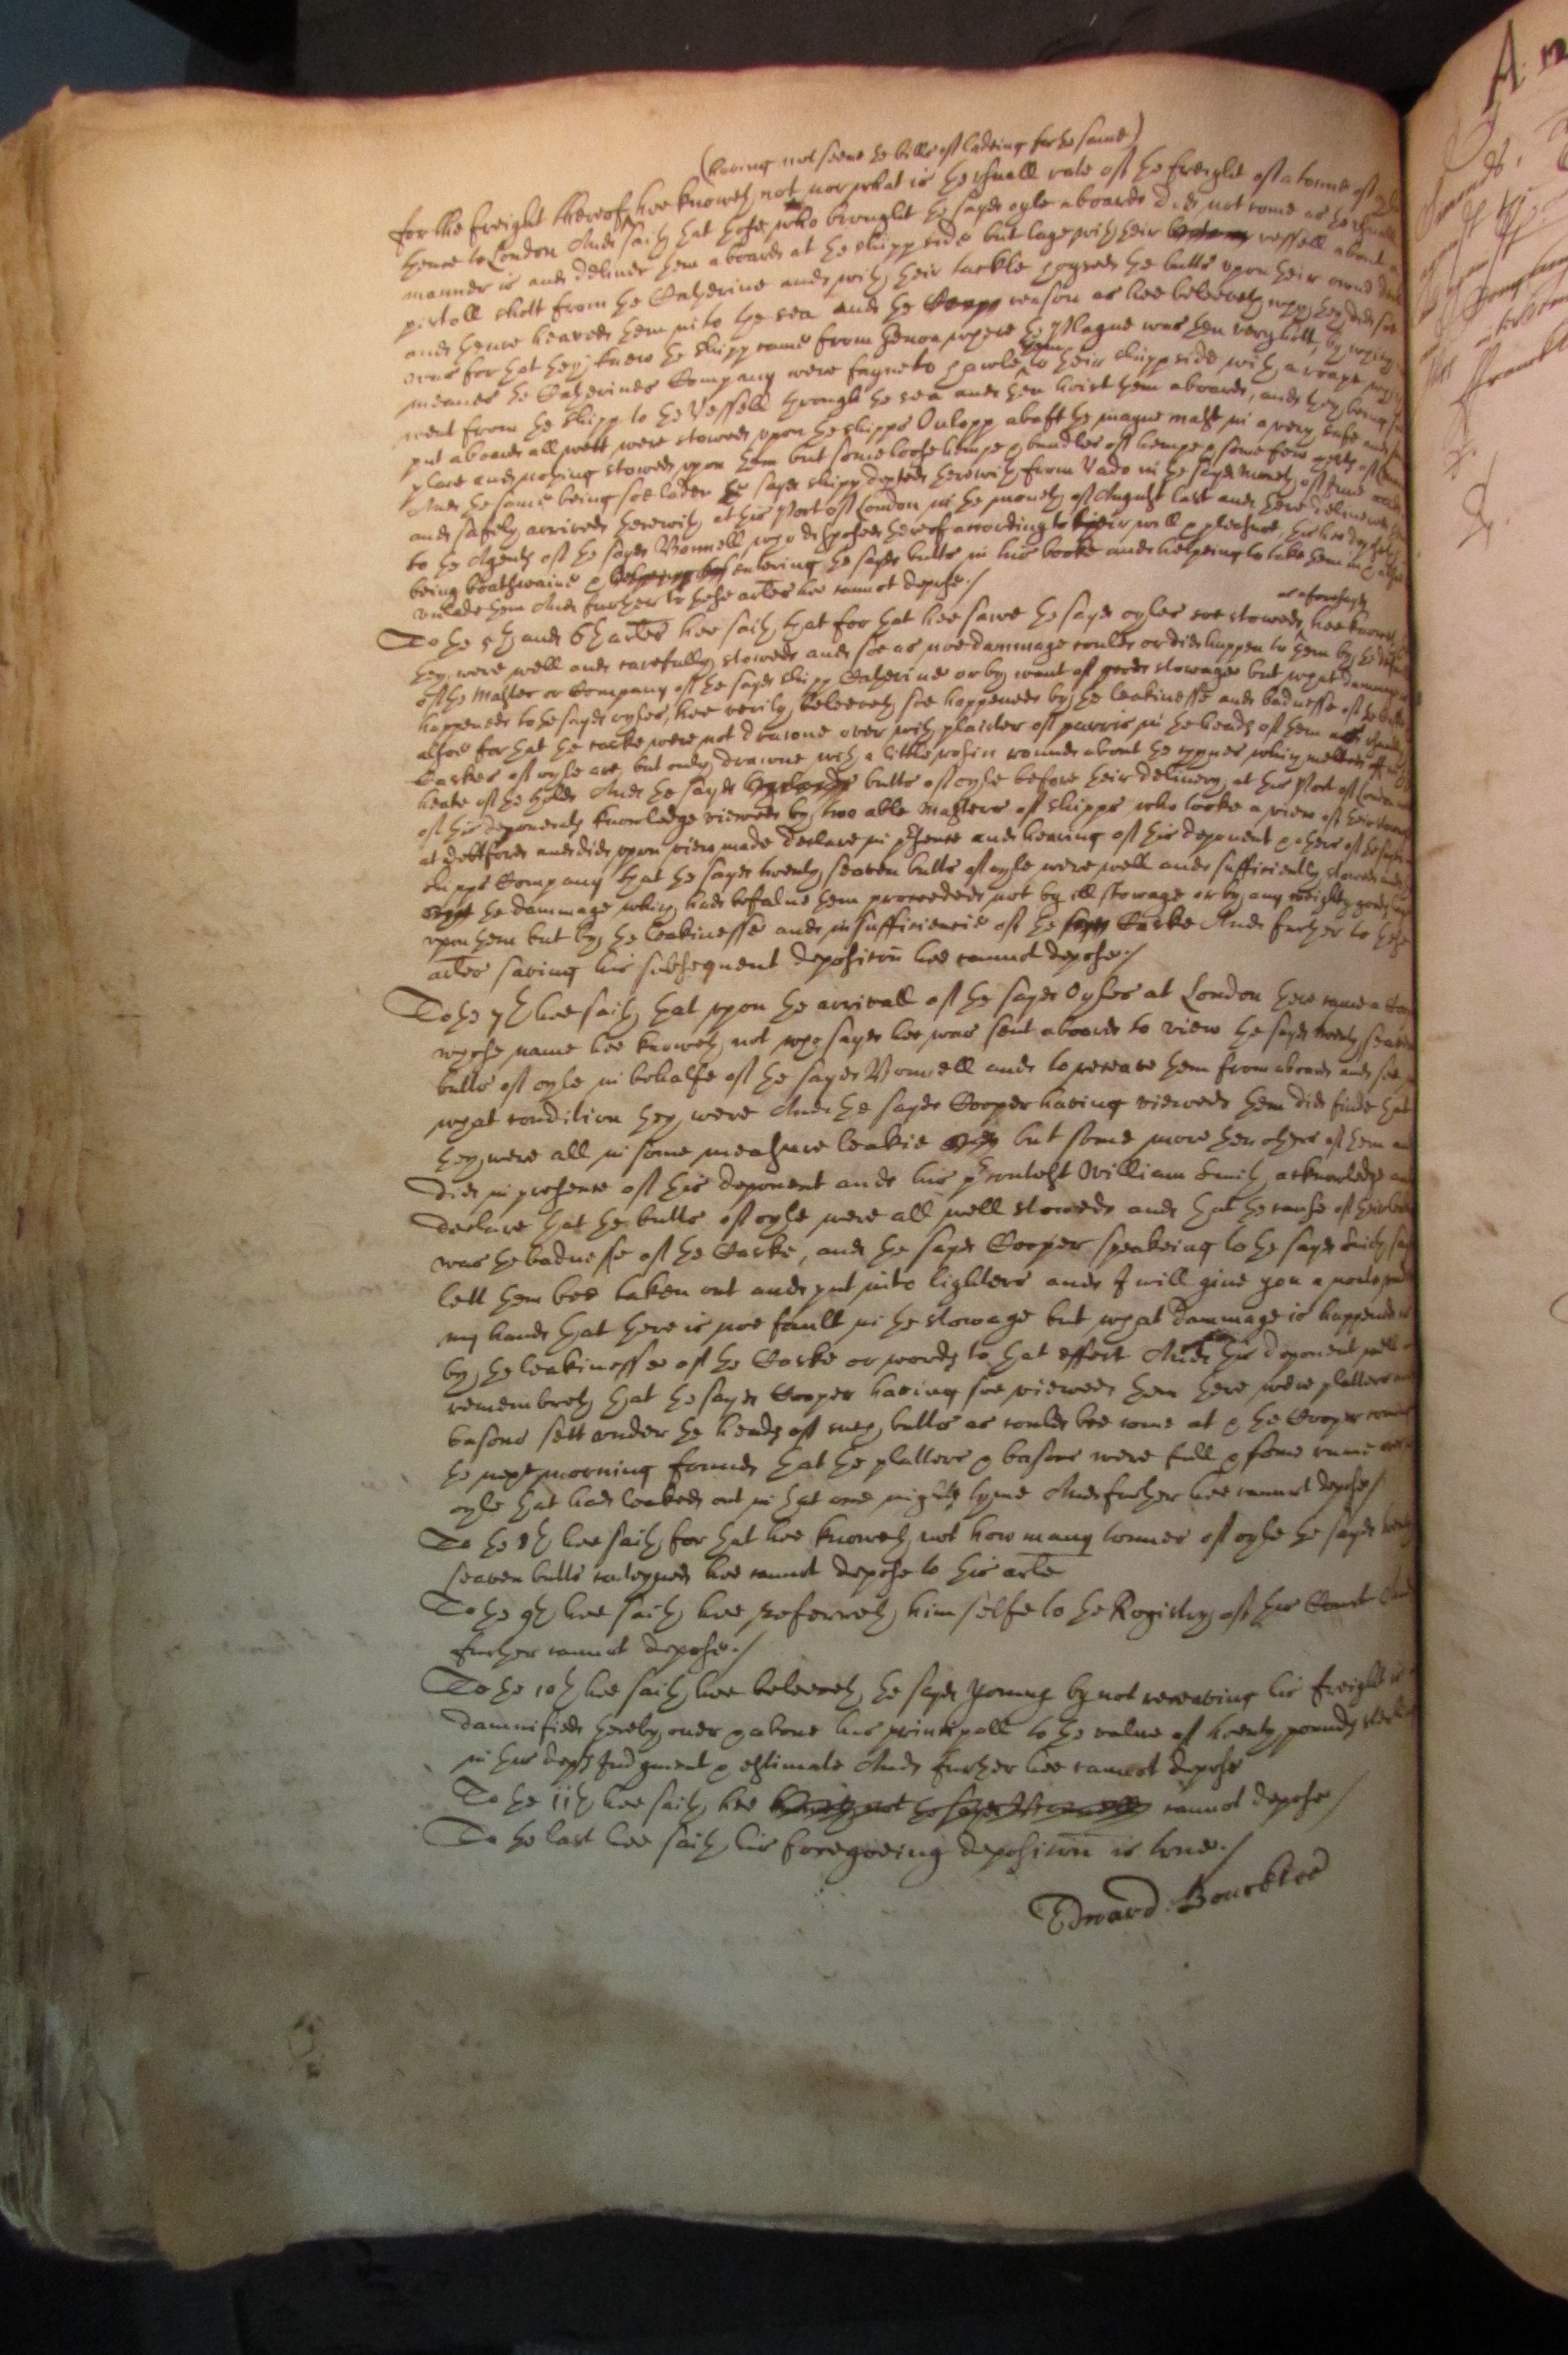 (having not seene the bills of ladeing for the same)
for the freight thereof hee knoweth not nor what is the usuall rate of the freight of a tonne of oyle
thence to London And saith that those who brought the sayd oyle aboard did not come as the usuall
manner is and deliver them aboard at the shipp side but laye with their vessell about a
pistoll shott from the Catherine and with their tackle the butts upon their owne
and thence heaved them into the sea and the reason as hee beleeveth why they did soe
was for that they knew the shipp came from Genoa where the Plague was then very hott, by which
meanes the Catherines Company were fayne to hawle them to their shipp side with a roape which
went from the shipp to the Vessell through the sea and then hoist them aboard, and they being
put aboard all well were stowed upon the shipps Orlopp abaft the mayne mast in a very safe and
place and nothing stowed upon them but some loose hempe & bundles of hempe & some few
And the same being soe laden the sayd shipp departed therewith from Vado in the sayd moneth of June
and safely arrived therewith at this Port of London in the moneth of August last and there delivered
to the Agents of the sayd Bonnell, who disposed thereof according to their will & pleasure, this hee deposeth
being boatswaine & entering the sayd butts in his booke and helpeing to take them in &
unlade them And further to these artes hee cannot depose./
To the 5th and 6th artes hee saith that for that hee sawe the sayd oyles soe stowed as aforesayd hee knoweth
they were well and carefully stowed and soe as noe dammage could or did happen to them by the
of the Master or Company of the sayd shipp Catherine or by want of good stowage but what dammage
happened to the sayd oyles, hee verily beleeveth soe happened by the leakinesse and badnesse of the butts
alsoe for that the caske were not drawne over with plaister of parris in the heads of them as usually
Caskes of oyle are, but only drawne with a little rosin round about the which melted off in the
heate of the hold And the sayd butts of oyle before their delivery at this Port of London
of this deponents knowledge viewed by two able Masters of shipps who tooke a view of their
at Debtford and did upon view made declare in presence and hearing of this deponent & others of the sayd
shipps Company that the sayd twenty seaven butts of oyle were well and sufficiently stowed and
the dammage which had befalne them proceeded not by ill stowage or by any weighty goods
upon them but by the leakinesse and insufficiencie of the Caske And further to these
artes saving his subsequent deposicon hee cannot depose./
To the 7th hee saith that upon the arrivall of the sayd Oyles at London there came a Cooper
whose name hee knoweth not who sayd hee was sent aboard to view the sayd twenty seaven
butts of oyle in behalfe of the sayd Bonnell and to receave them from aboard and see
what condition they were And the sayd Cooper having viewed them did finde that
they were all in some measure leakie but some more then others of them and
did in presence of this deponent and his precontest William Smith acknowledge and
declare that the butts of oyle were all well stowed and that the cause of their
was the badnesse of the Caske, and the sayd Cooper speakeing to the sayd Smith sayd
lett them bee taken out and put into lighters and I will give you a note under
my hand that there is noe fault in the stowage but what dammage is happened is
by the leakinesse of the Caske or words to that effect And this deponent well
remembreth that the sayd Cooper having soe viewed them there were platters and
basons sett under the heads of such butts as could bee come at & the Cooper
the next morning found that the platters & basons were full & some runne over
oyle that had leaked out in that one nights tyme And further hee cannot depose/
To the 8th hee saith for that hee knoweth not how many tonnes of oyle the sayd twenty
seaven butts conteyned hee cannot depose to this arte
To the 9th hee saith hee referreth himselfe to the Registry of this Court And
further cannot depose./
To the 10th hee saith hee beleeveth the sayd Young by not receaving his freight is
damnified thereby over & above his principall to the value of twenty pounds sterling
in this depts Judgment & estimate And further hee cannot depose
To the 11th hee saith hee cannot depose/
To the last hee saith his foregoeing deposicon is true./
Edward Bourkter